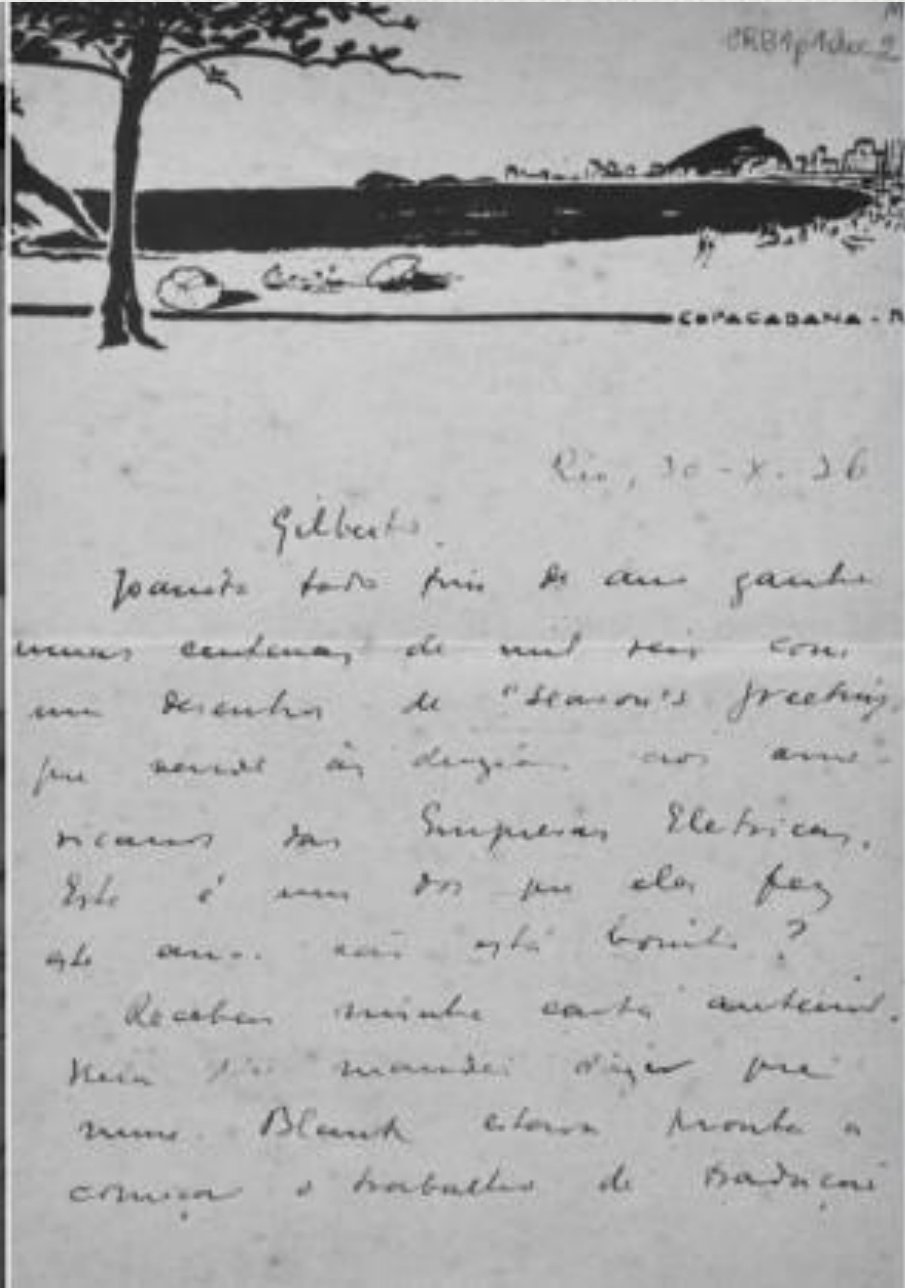 COPACABANA - R
Rio, 30-X-36
Gilberto.
Joanita todo fim de ano ganha
umas centenas de mil reis com
um desenho de "season's greetings,
que vende às duzias aos ame-
ricanos das Empresas Eletricas.
Este é um dos que ela fez
este ano. não está bonito?
Recebeu minha carta anterior.
Nela mandei dizer que
mme. Blank estava pronta a
começar o trabalho de tradução